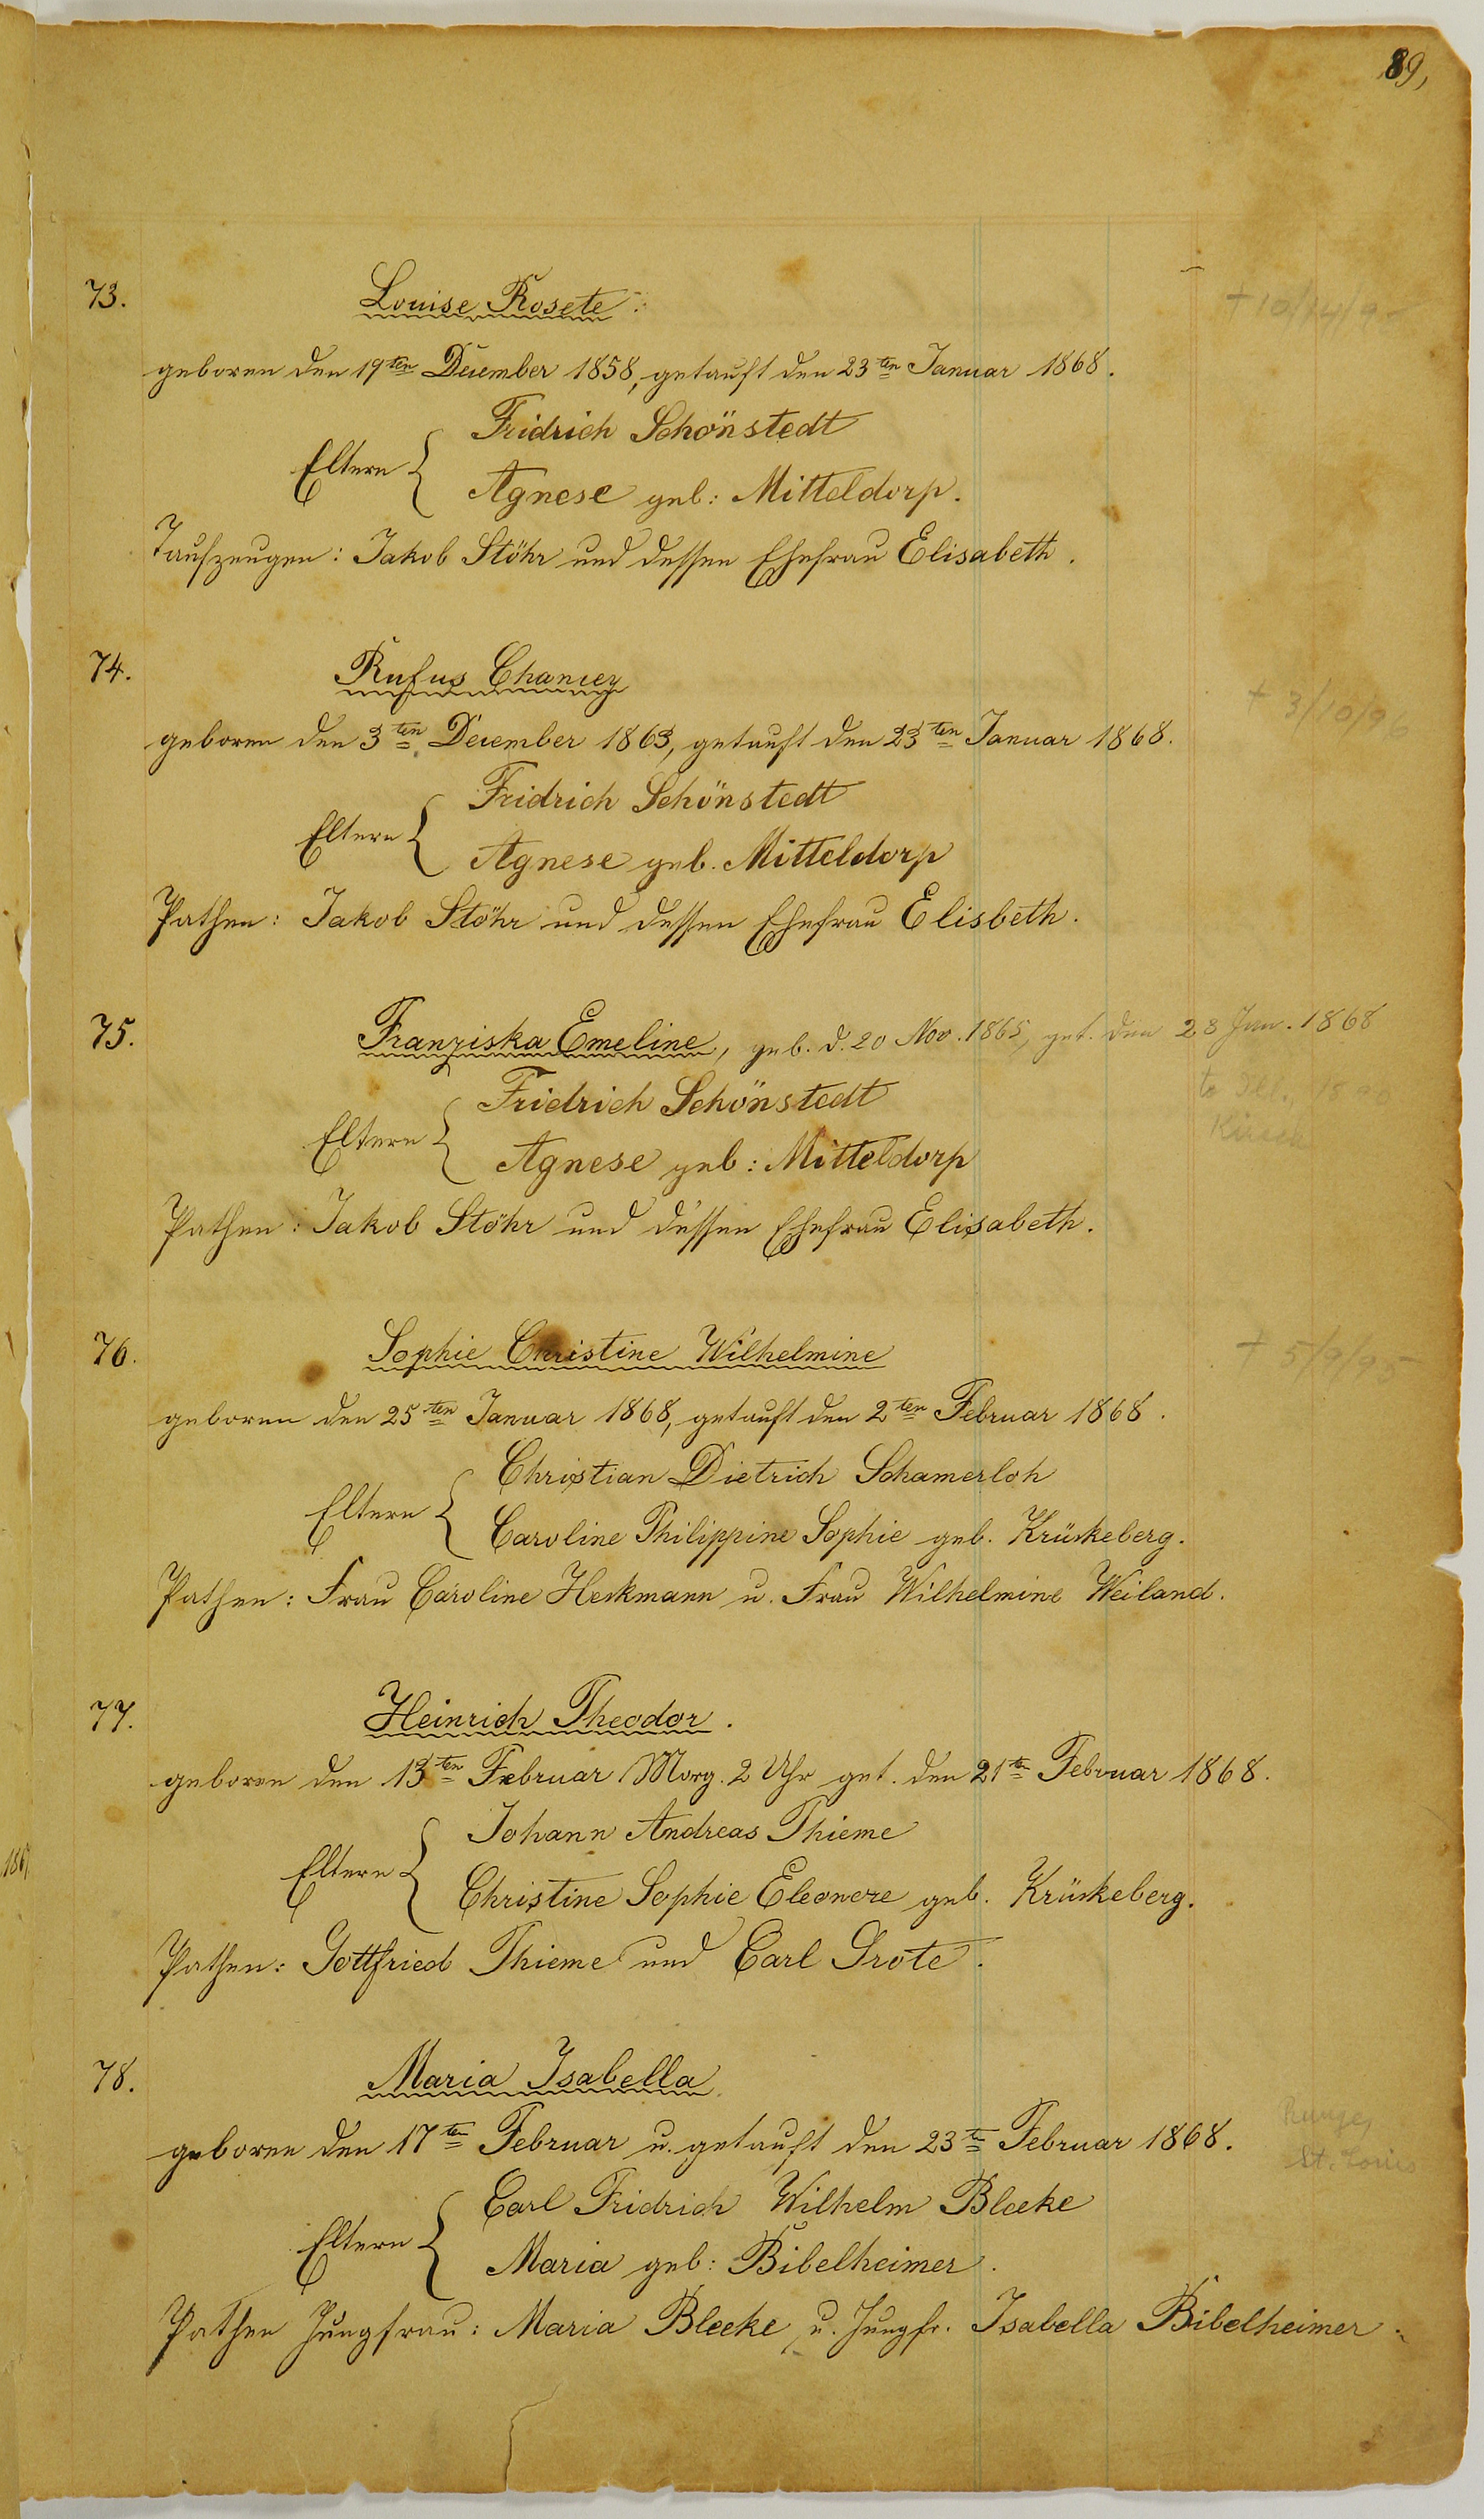 89,
73. Louise Rosete.
geboren den 19ten December 1858, getauft den 23ten Januar 1868.
Fridrich Schönstedt
Eltern {
Agnese geb: Mitteldorp.
Taufzeugen: Jakob Stöhr und dessen Ehefrau Elisabeth.
74. Rufus Chancey
geboren den 3ten December 1863, getauft den 23ten Januar 1868.
Fridrich Schönstedt
Eltern {
Agnese geb. Mitteldorp
Pathen: Jakob Stöhr und dessen Ehefrau Elisbeth.
+ 3/10/96
75. Franziska Emeline, geb. d. 20 Nov. 1865, get. den 23 Jan. 1868
Fridrich Schönstedt
Eltern {
Agnese geb: Mitteldorp
Pathen: Jakob Stöhr und dessen Ehefrau Elisabeth.
76. Sophie Christine Wilhelmine
+ 5/9/95
geboren den 25ten Januar 1868, getauft den 2ten Februar 1868.
Christian Dietrich Schamerloh
Eltern {
Caroline Philippine Sophie geb. Krückeberg.
Pathen: Frau Caroline Heckmann u. Frau Wilhelmine Weiland.
77. Heinrich Theodor.
geboren den 13ten Februar Morg. 2 Uhr get. den 21ten Februar 1868.
Johann Andreas Thieme
Eltern {
Christine Sophie Eleonore geb. Krückeberg.
Pathen: Gottfried Thieme und Carl Grote.
78. Maria Isabella
geboren den 17ten Februar u. getauft den 23ten Februar 1868.
St. Louis
Carl Fridrich Wilhelm Bleeke
Eltern {
Maria geb: Bibelheimer.
Pathen Jungfrau: Maria Bleeke u. Jungfr. Isabella Bibelheimer.